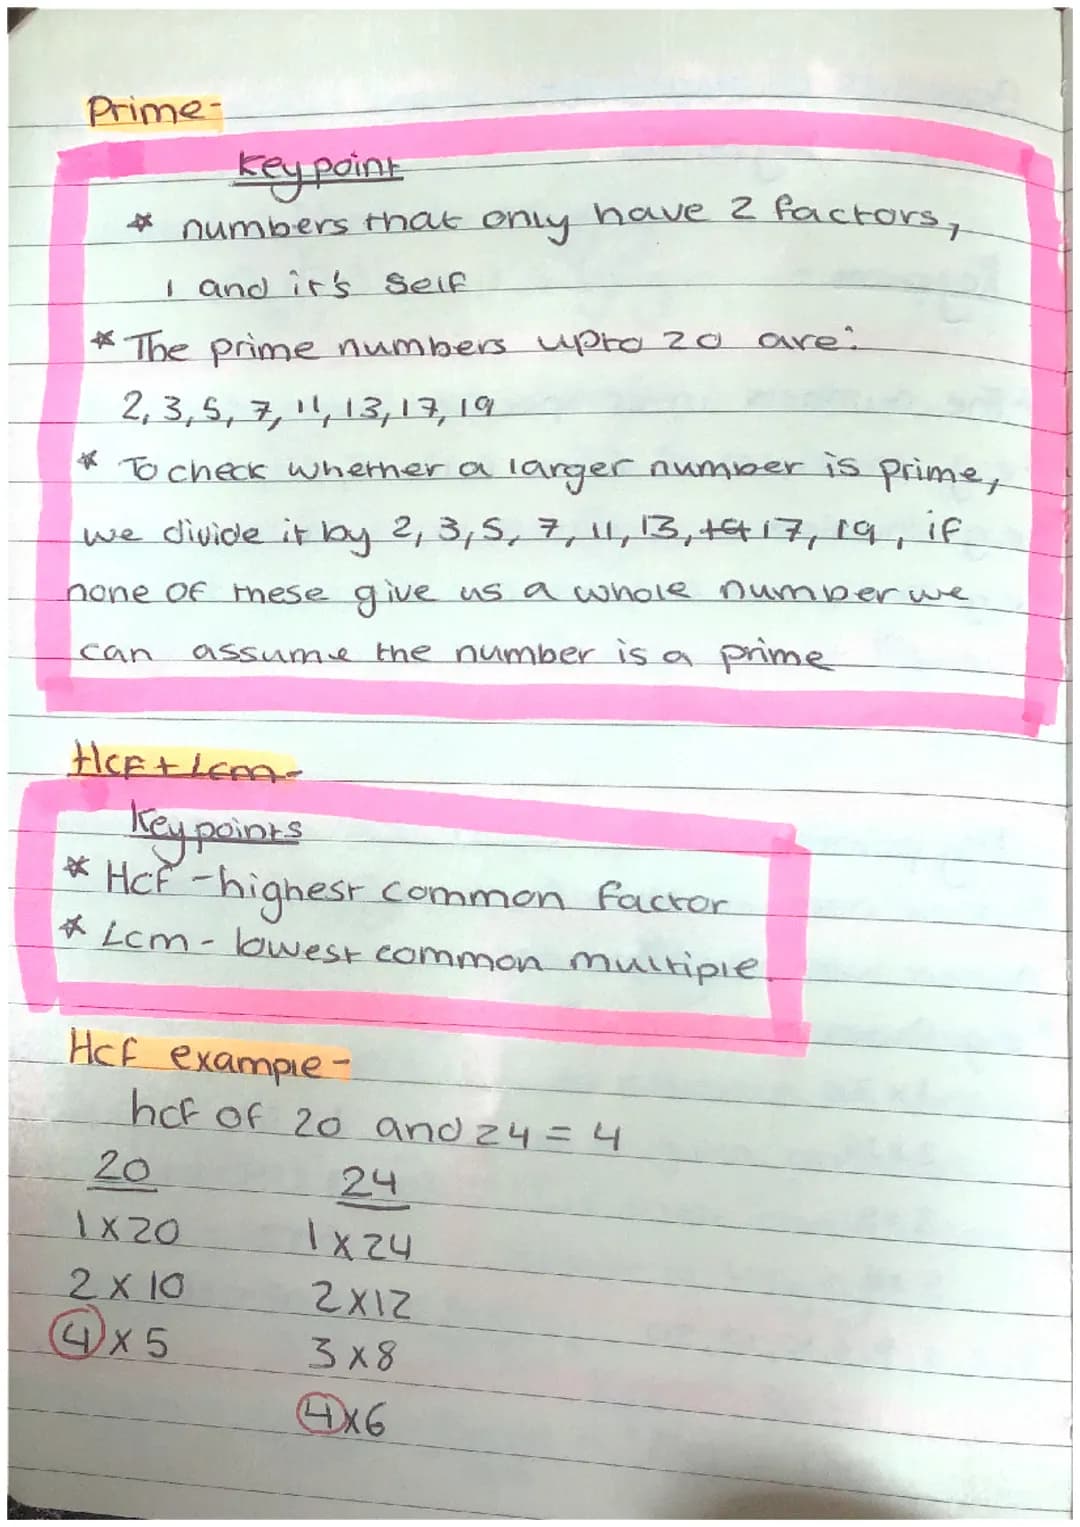 Prime-
Key point
* numbers that only have 2 factors,
1 and it's self
* The prime numbers upto 20 are:
2, 3, 5, 7, 11, 13, 17, 19
* To check whether a larger number is prime,
we divide it by 2, 3, 5, 7, 11, 13, 17, 19, if
none of these give us a whole number we
can assume the number is a prime
Hcf + Lcm-
Key points
* Hcf - highest common factor
* Lcm - lowest common multiple.
Hcf example -
hcf of 20 and 24 = 4
20 24
1 x 20 1 x 24
2 x 10 2 x 12
4 x 5 3 x 8
4 x 6